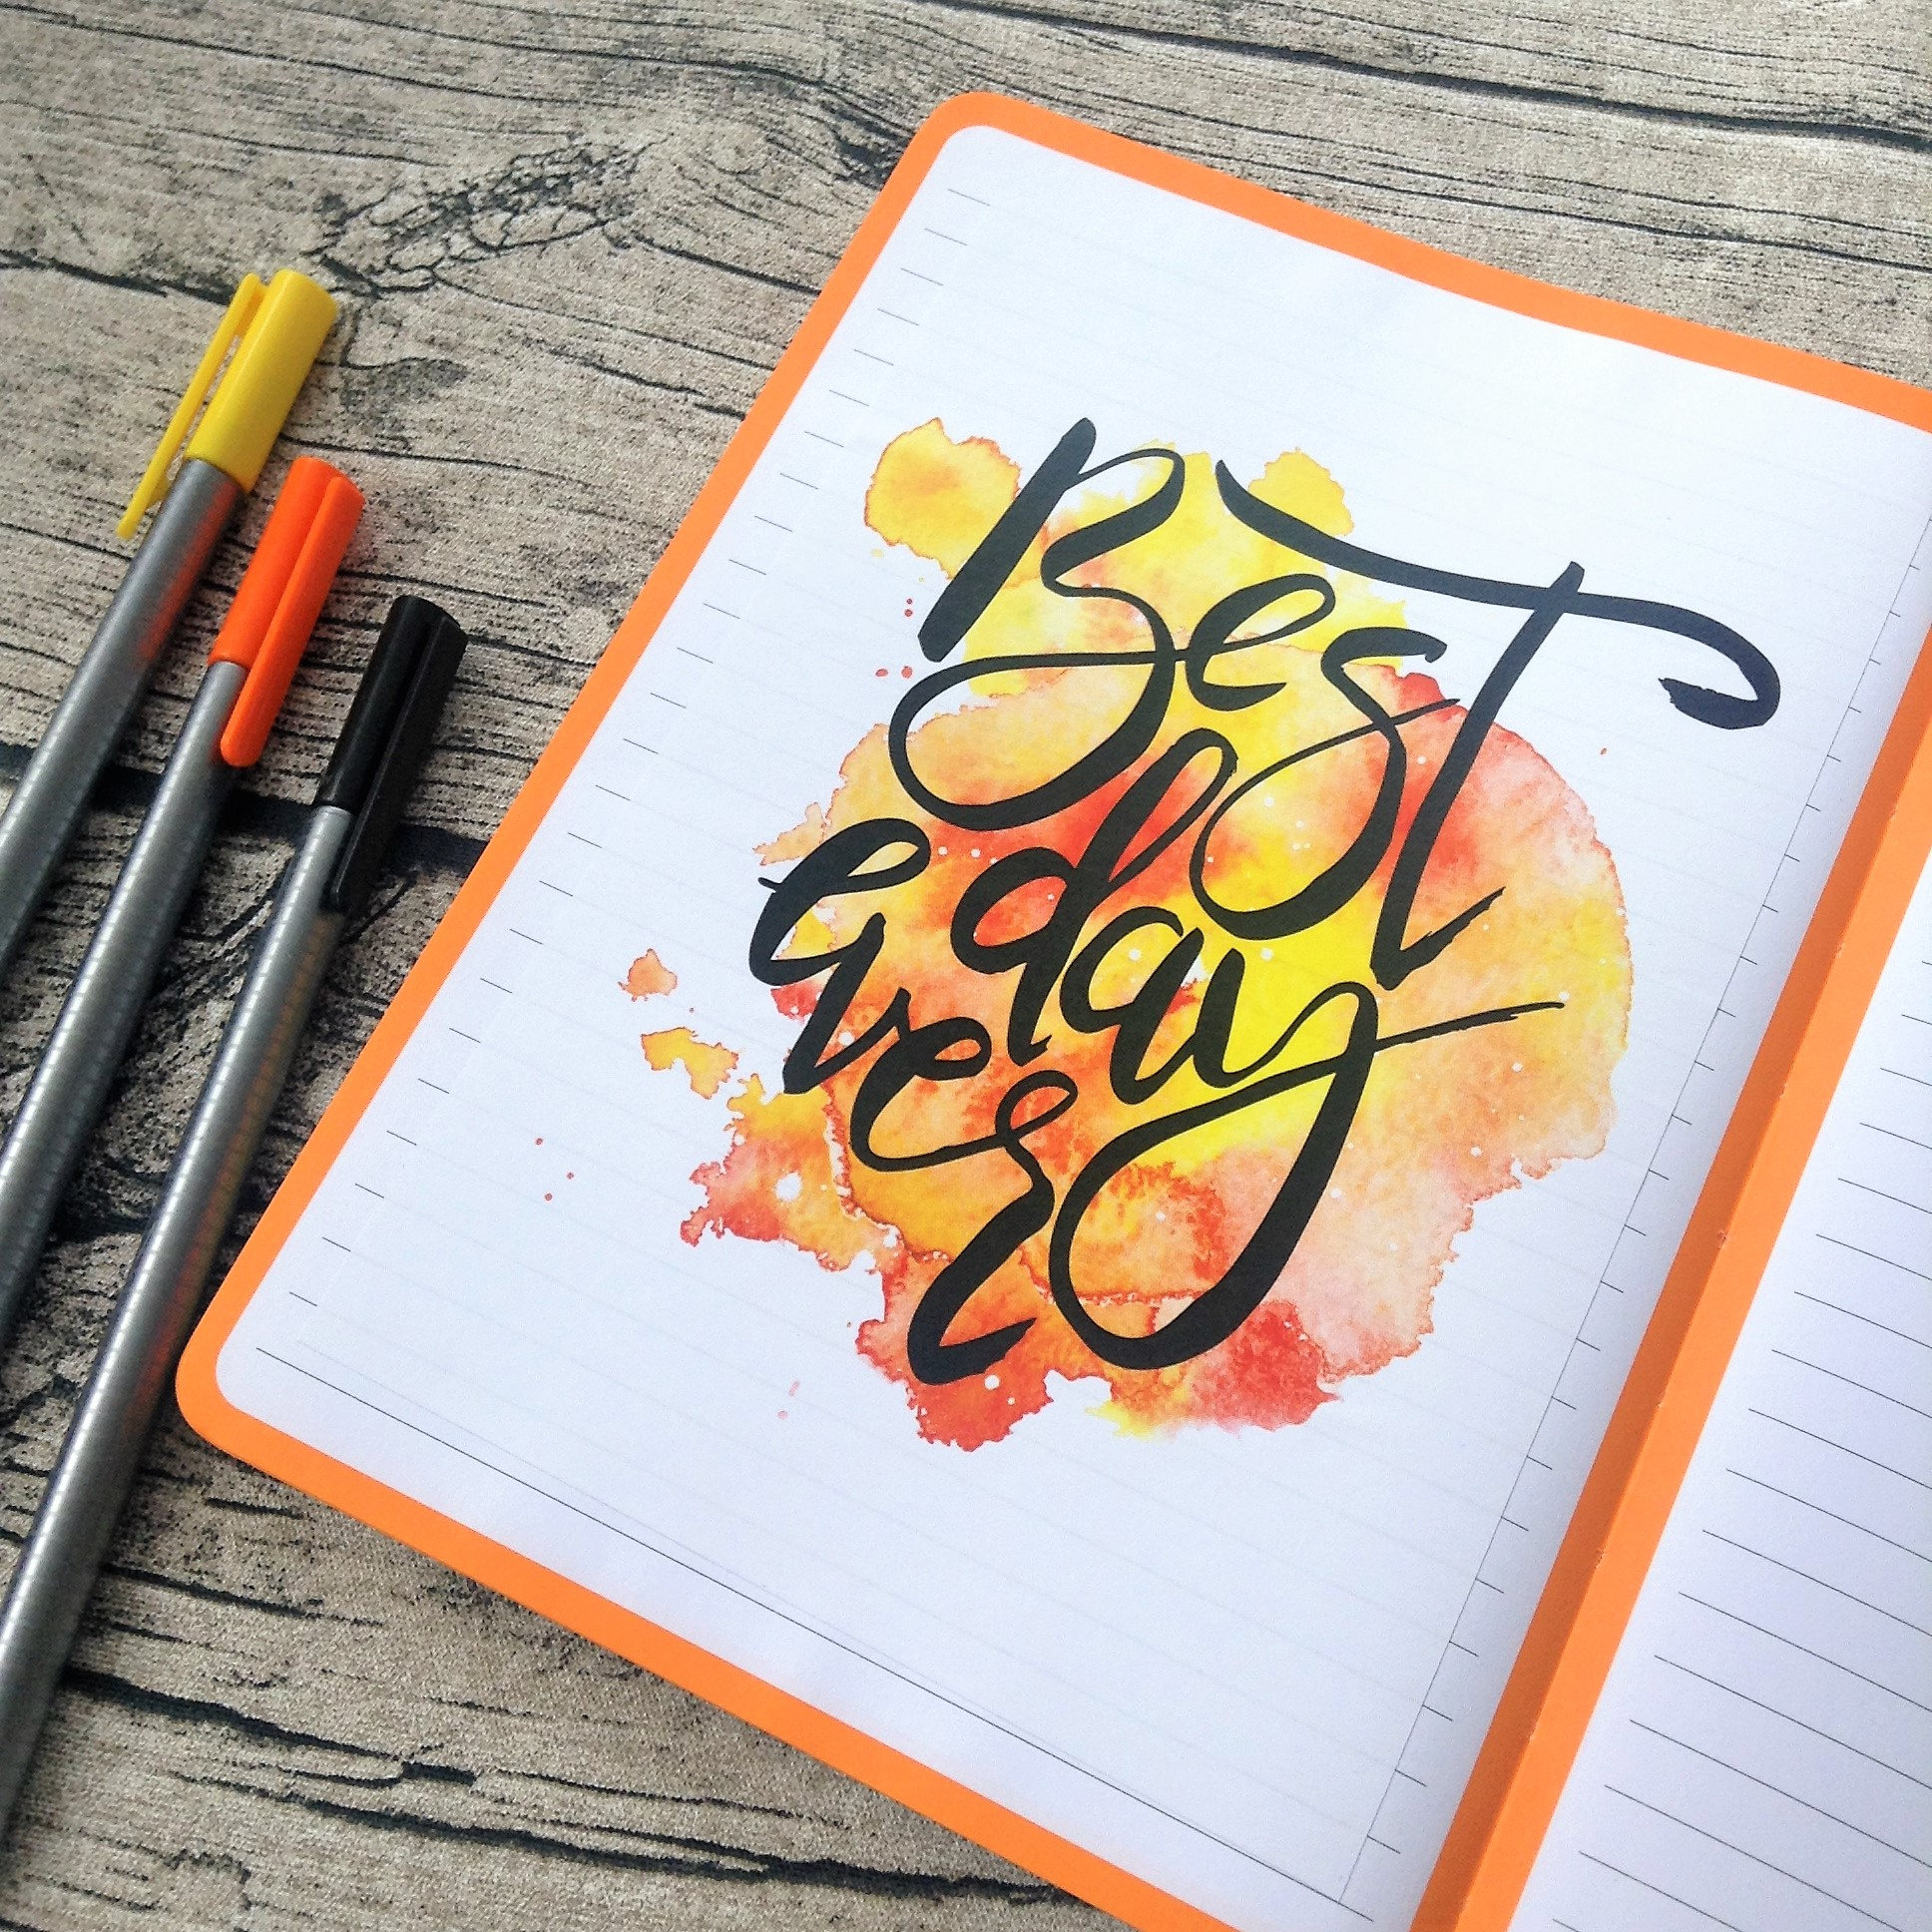 Best
day
ever